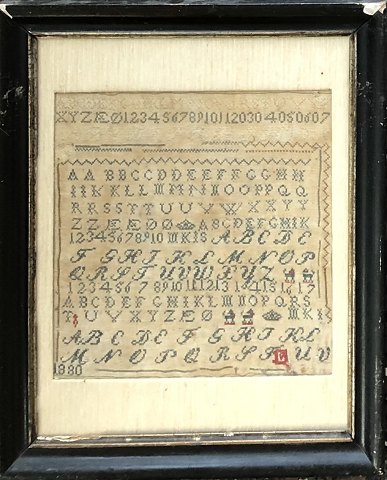 XYZÆØ1234567891011203040506 07
AABBCCDDEEFFGGHH
IIKKLLMMNNOOPPQQ
RRSSTTUUVVXXYY
ZZÆÆØØABCDEFGHIK
12345678910MKISABCDE
FGHIKLMNOP
QRSTUVWXYZ
1234567891011121314151617
ABCDEFGHIKLMNOPQRS
TUVXYZÆØMKI
ABCDEFGHIKL
MNOPQRSTEUV
1880